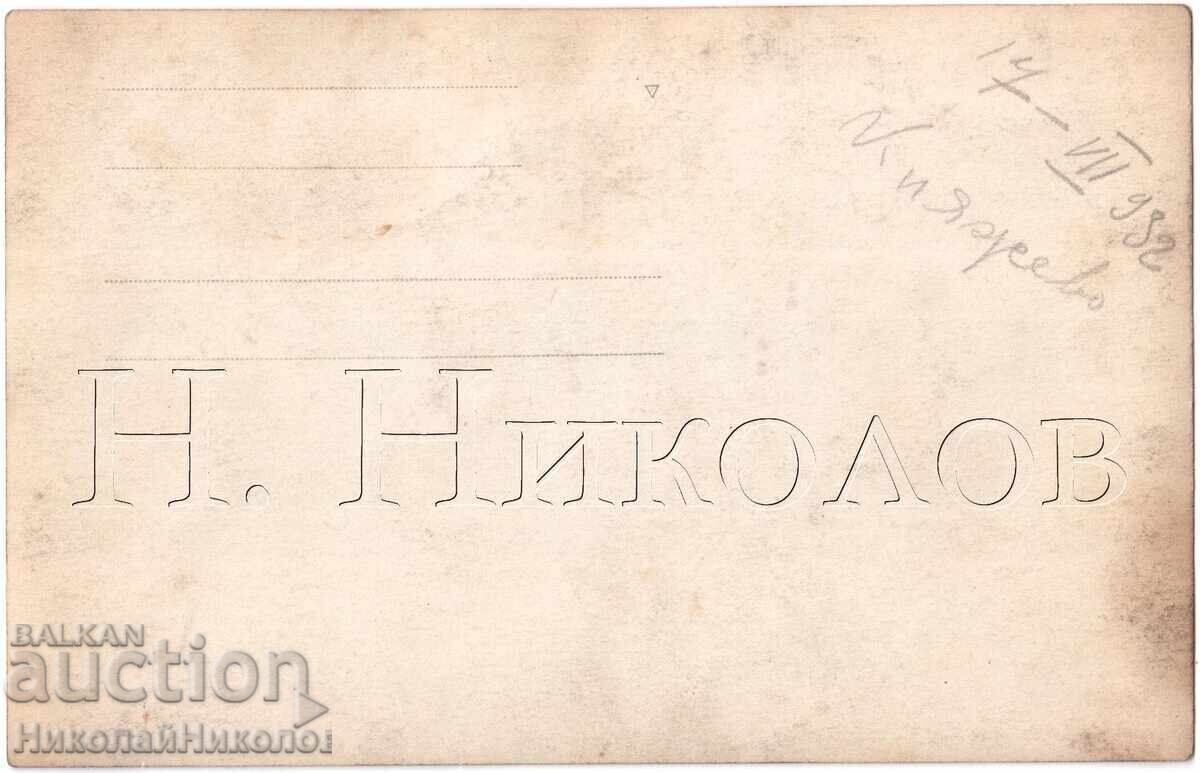 17-VIII 932
Княжево
Н. Николов
BALKAN
auction
НиколайНиколов